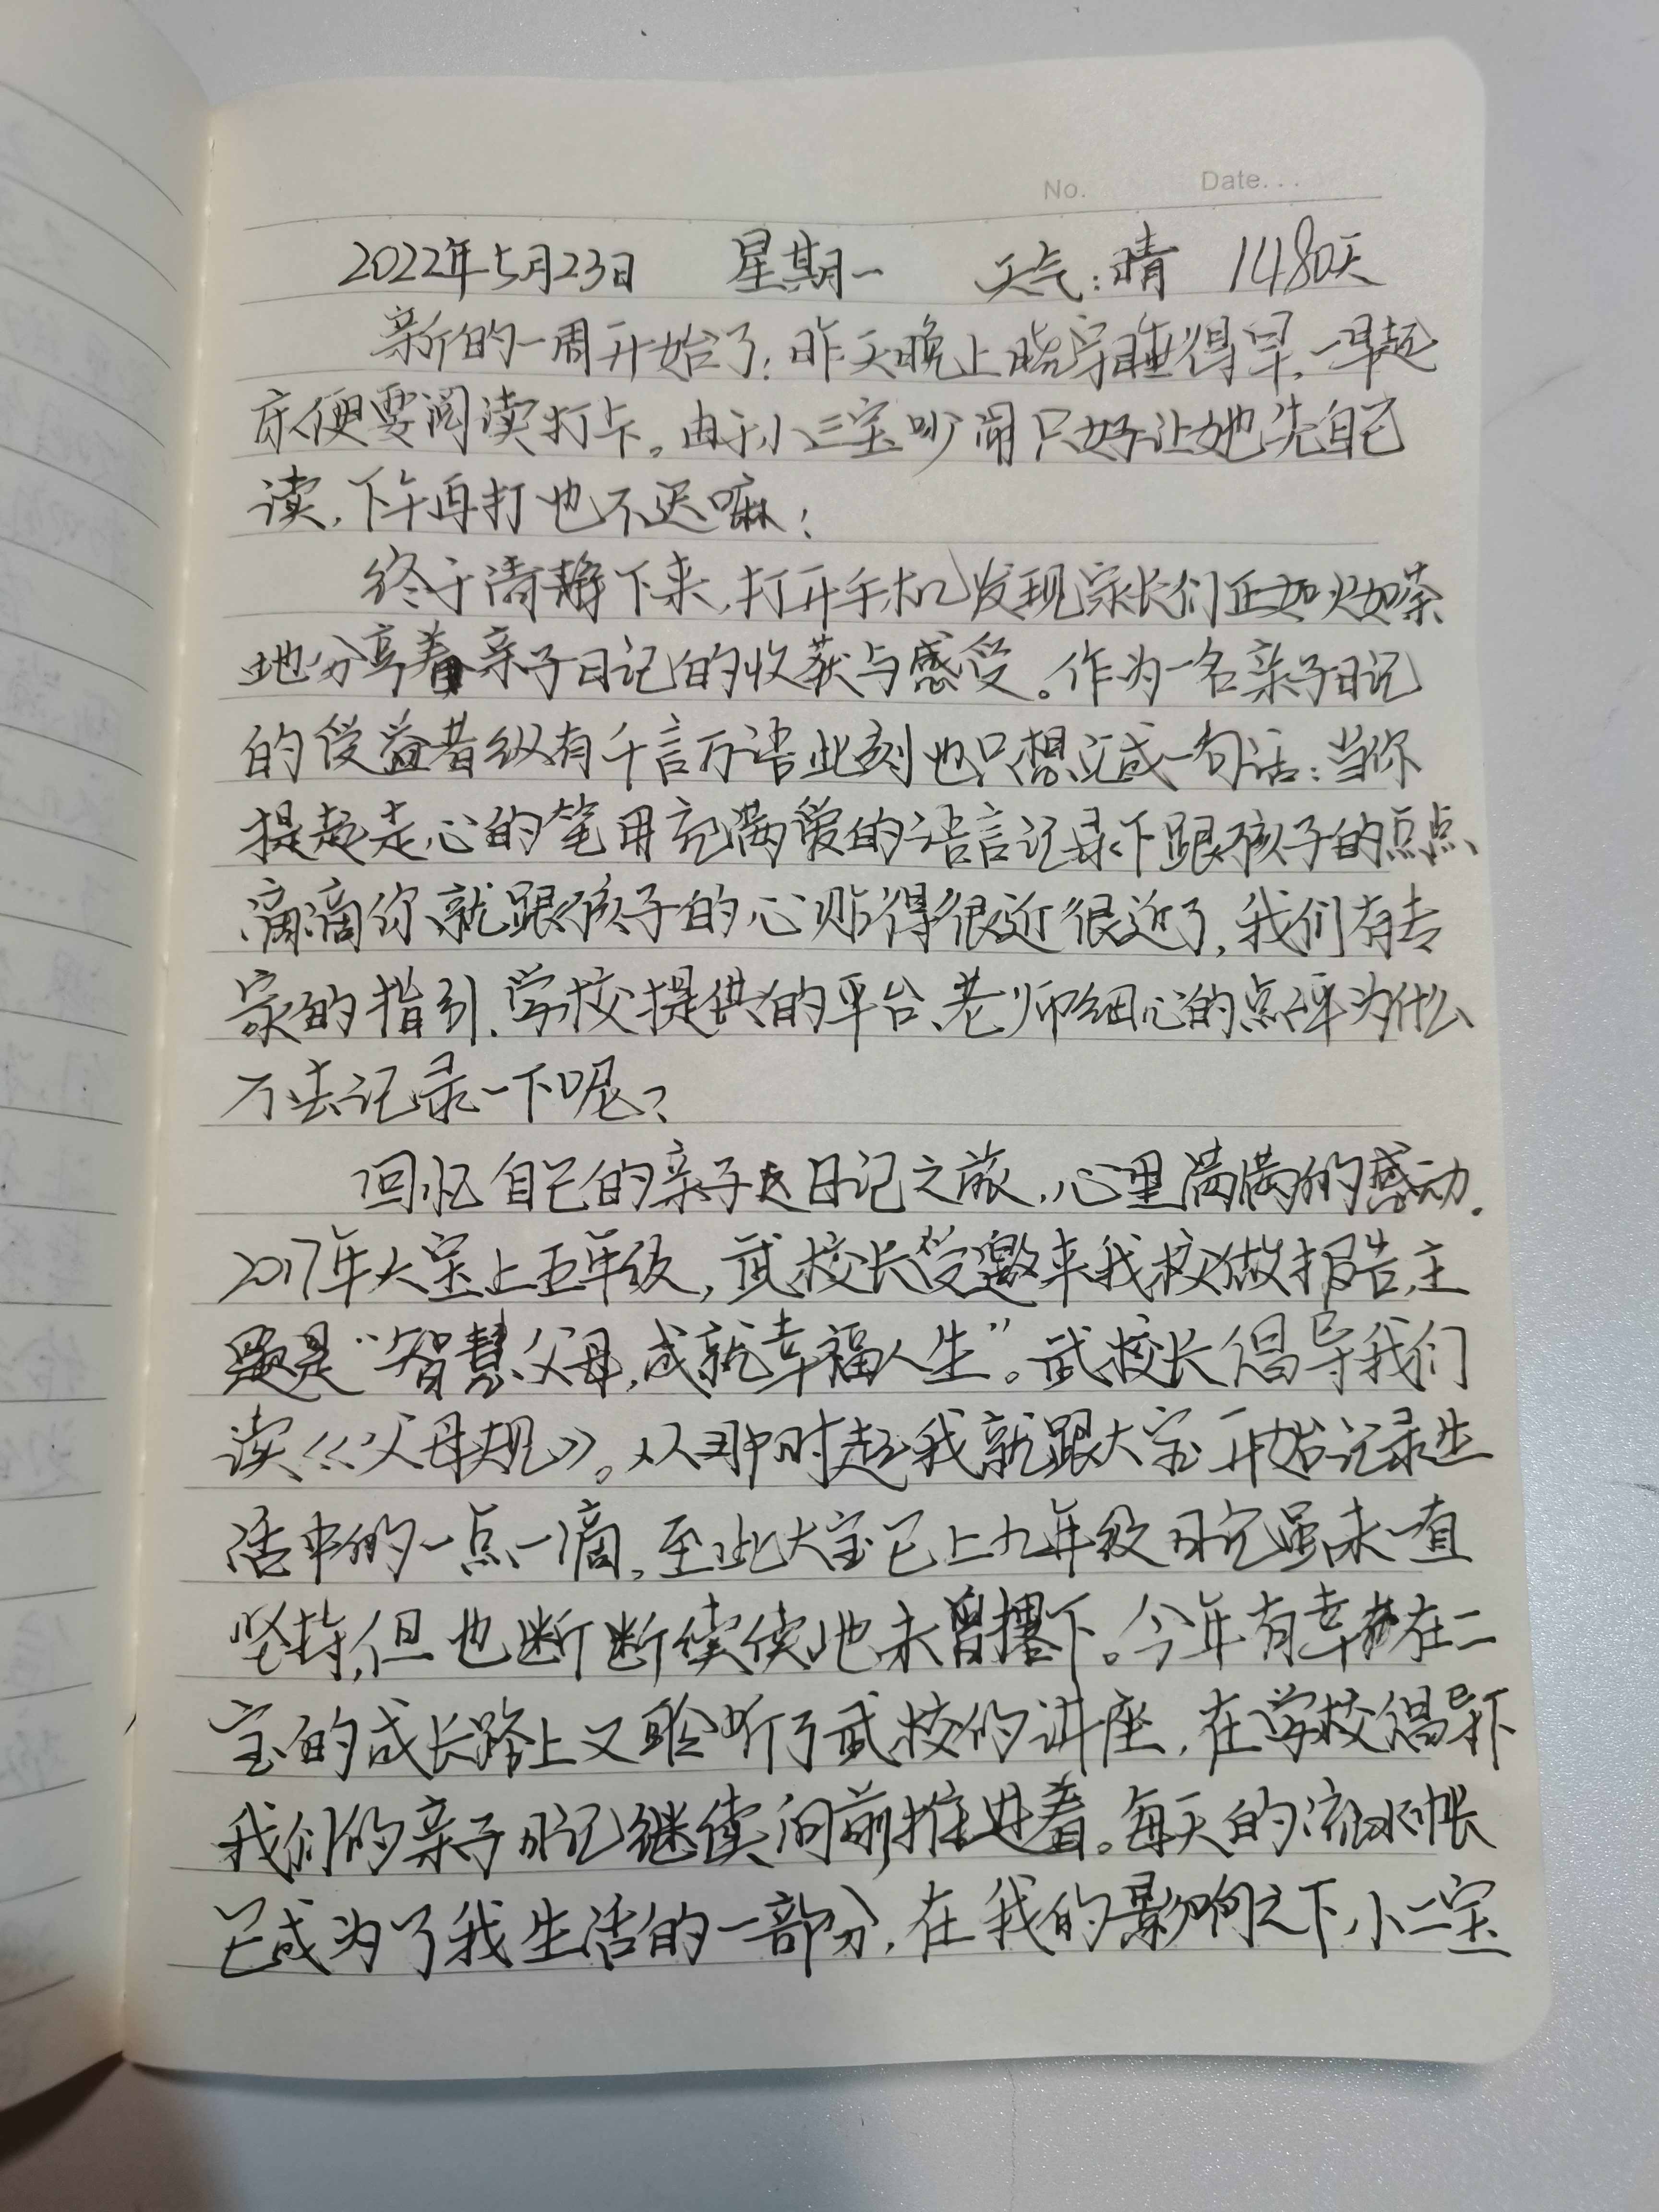 No. Date...
2022年5月23日 星期一 天气:晴 1480天
新的一周开始了!昨天晚上晓宇睡得早,一早起
床便要阅读打卡。由于小三宝吵闹只好让她先自己
读,下午再打也不迟嘛!
终于清静下来,打开手机发现家长们正如火如荼
地分享着亲子日记的收获与感受。作为一名亲子日记
的受益者纵有千言万语此刻也只想汇成一句话:当你
提起走心的笔用充满爱的语言记录下跟孩子的点点
滴滴你就跟孩子的心贴得很近很近了,我们有专
家的指引、学校提供的平台、老师细心的点评为什么
不去记录一下呢?
回忆自己的亲子日记之旅,心里满满的感动。
2017年大宝上五年级,武校长受邀来我校做报告,主
题是“智慧父母,成就幸福人生”。武校长倡导我们
读《父母规》。从那时起我就跟大宝开始记录生
活中的一点一滴,至此大宝已上九年级日记虽未一直
坚持,但也断断续续地未曾撂下。今年有幸在二
宝的成长路上又聆听了武校的讲座,在学校倡导下
我们的亲子日记继续向前推进着。每天的流水帐
已成为了我生活的一部分,在我的影响之下,小二宝